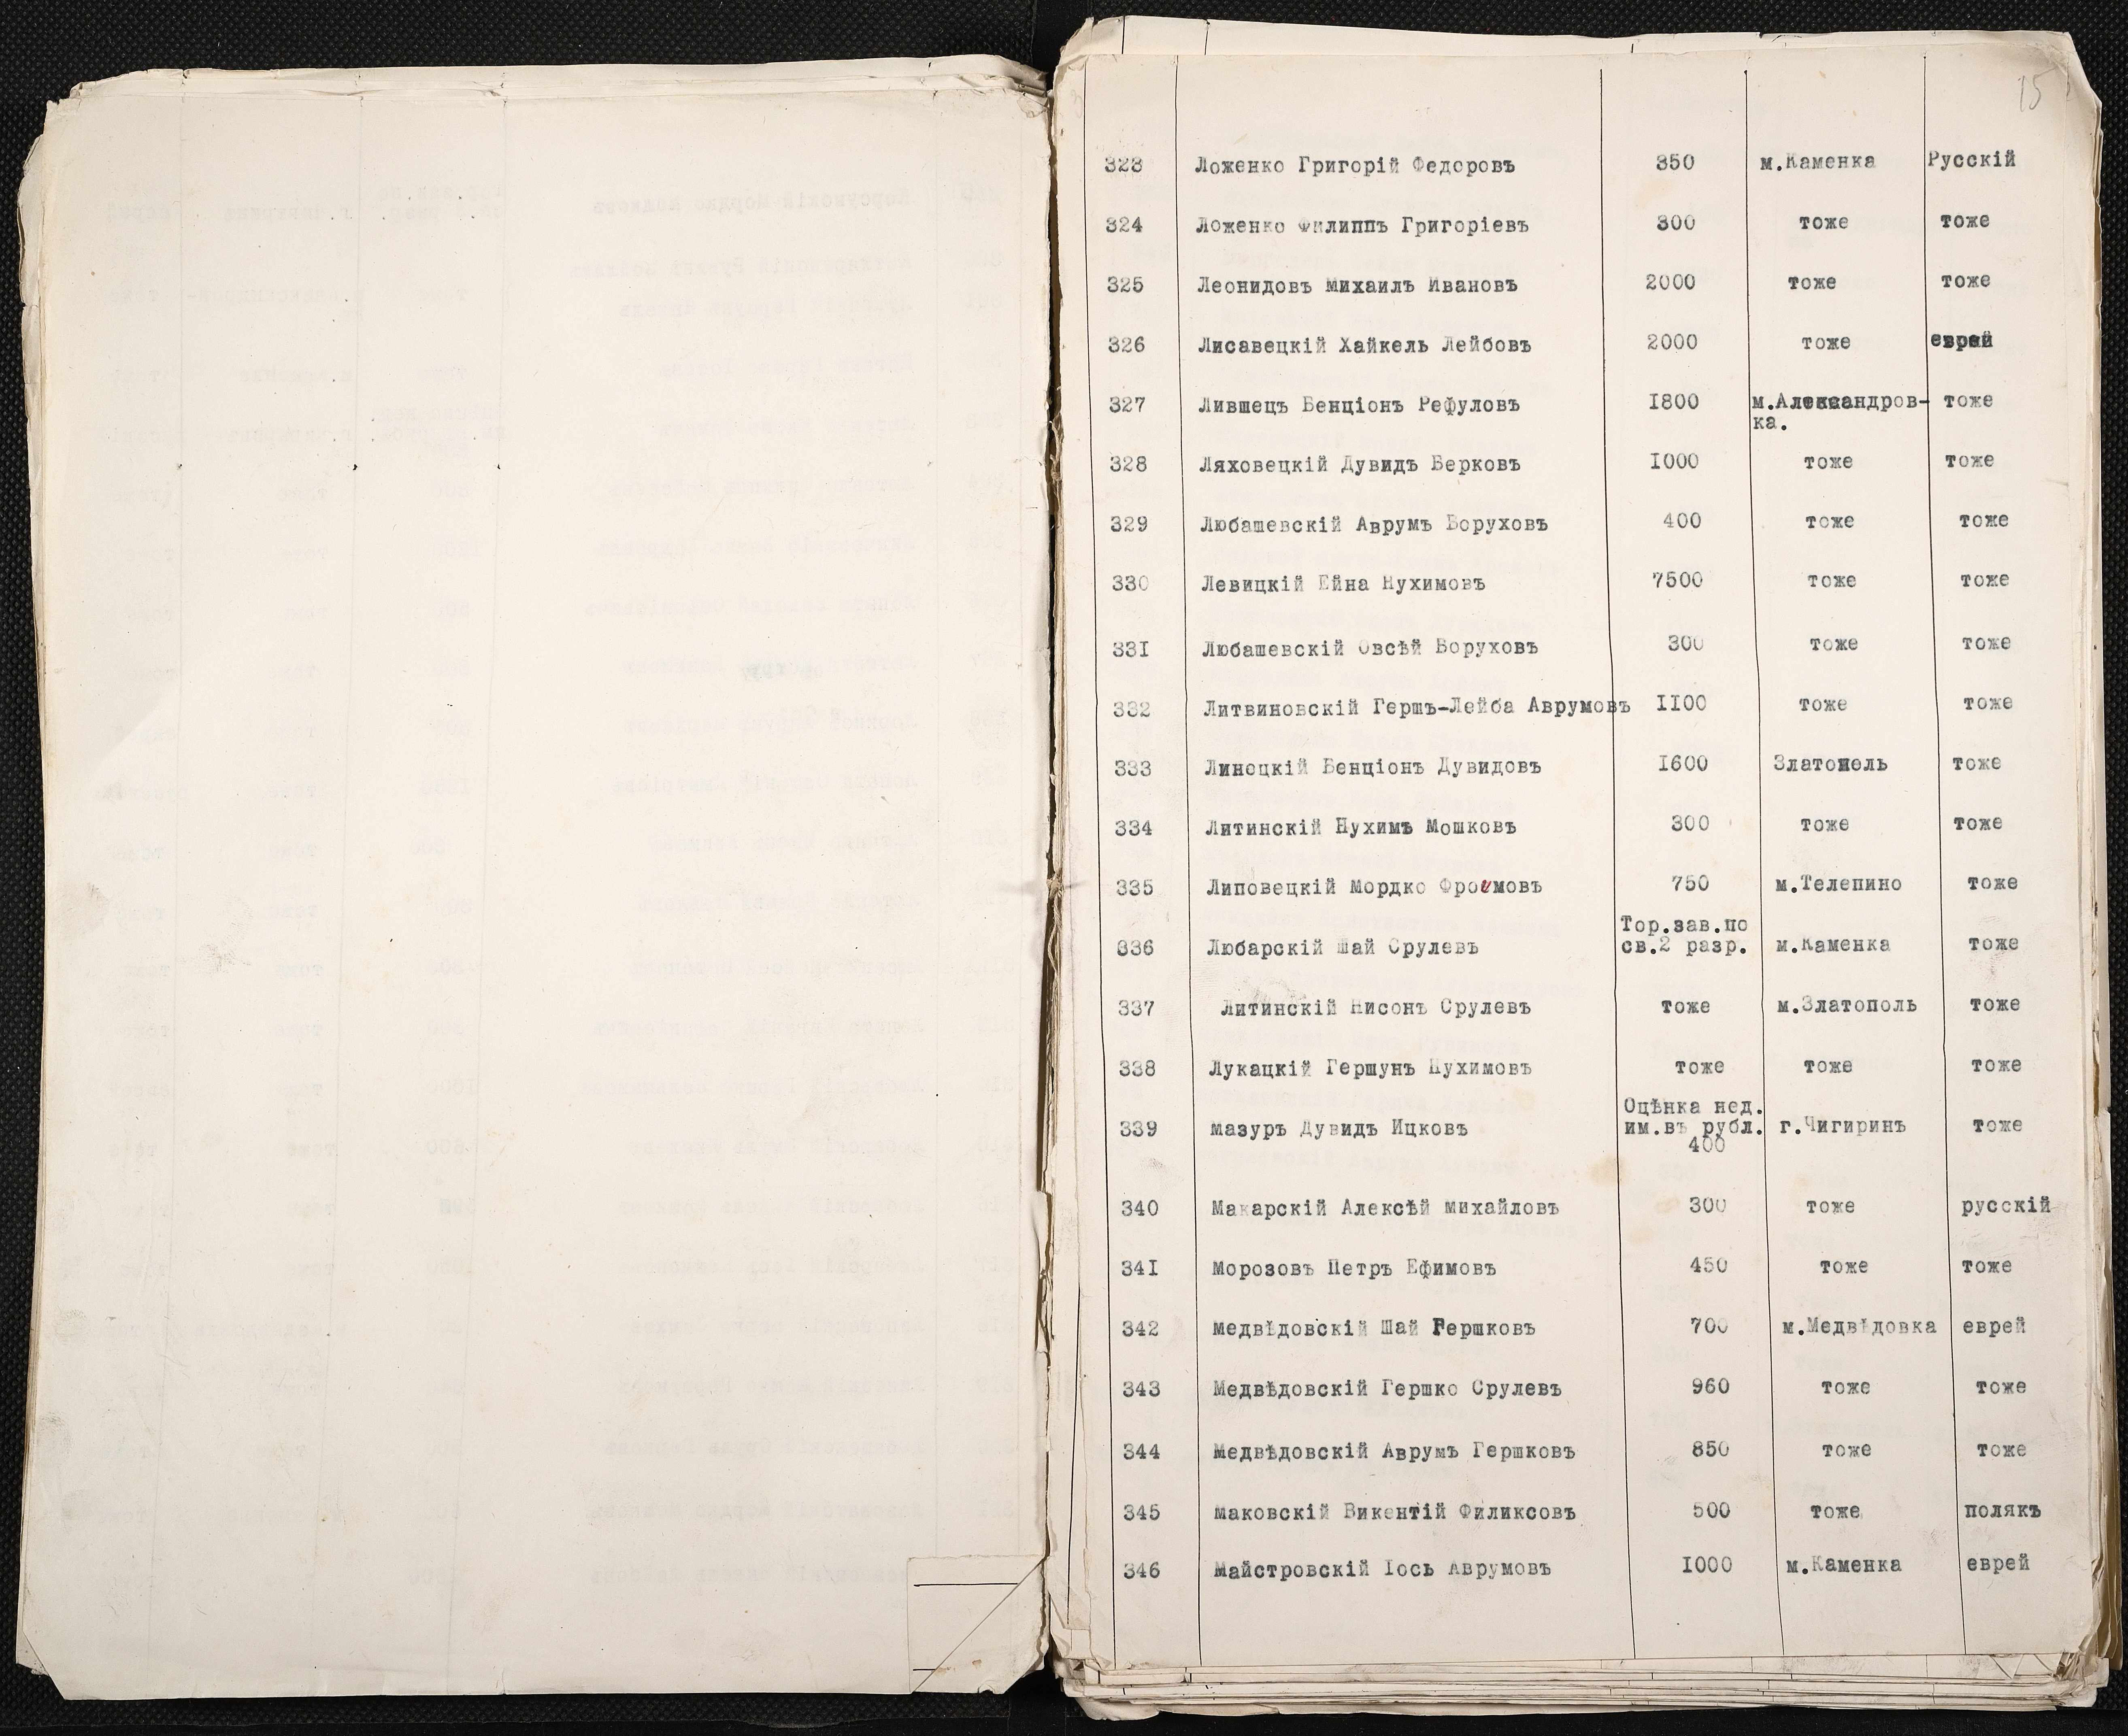 15
323 Ложенко Григорій Федоровъ 350 м.Каменка Русскій
324 Ложенко Филиппъ Григоріевъ 300 тоже тоже
325 Леонидовъ Михаилъ Ивановъ 2000 тоже тоже
326 Лисавецкій Хайкель Лейбовъ 2000 тоже еврей
327 Лившецъ Бенціонъ Рефуловъ I800 м.Александров- тоже
ка.
328 Ляховецкій Дувидъ Берковъ I000 тоже тоже
329 Любашевскій Аврумъ Боруховъ 400 тоже тоже
330 Левицкій Ейна Нухимовъ 7500 тоже тоже
33I Любашевскій Овсѣй Боруховъ 300 тоже тоже
332 Литвиновскій Гершъ-Лейба Аврумовъ II00 тоже тоже
333 Линецкій Бенціонъ Дувидовъ I600 Златопель тоже
334 Литинскій Нухимъ Мошковъ 300 тоже тоже
335 Липовецкій Мордко Фроимовъ 750 м.Телепино тоже
Тор.зав.по
336 Любарскій Шай Срулевъ св.2 разр. м.Каменка тоже
337 Литинскій Нисонъ Срулевъ тоже м.Златополь тоже
338 Лукацкій Гершунъ Нухимовъ тоже тоже тоже
Оцѣнка нед.
339 Мазуръ Дувидъ Ицковъ им.въ рубл. г.Чигиринъ тоже
400
340 Макарскій Алексѣй Михайловъ 300 тоже русскій
34I Морозовъ Петръ Ефимовъ 450 тоже тоже
342 Медвѣдовскій Шай Гершковъ 700 м.Медвѣдовка еврей
343 Медвѣдовскій Гершко Срулевъ 960 тоже тоже
344 Медвѣдовскій Аврумъ Гершковъ 850 тоже тоже
345 Маковскій Викентій Филиксовъ 500 тоже полякъ
346 Майстровскій Іось Аврумовъ I000 м.Каменка еврей